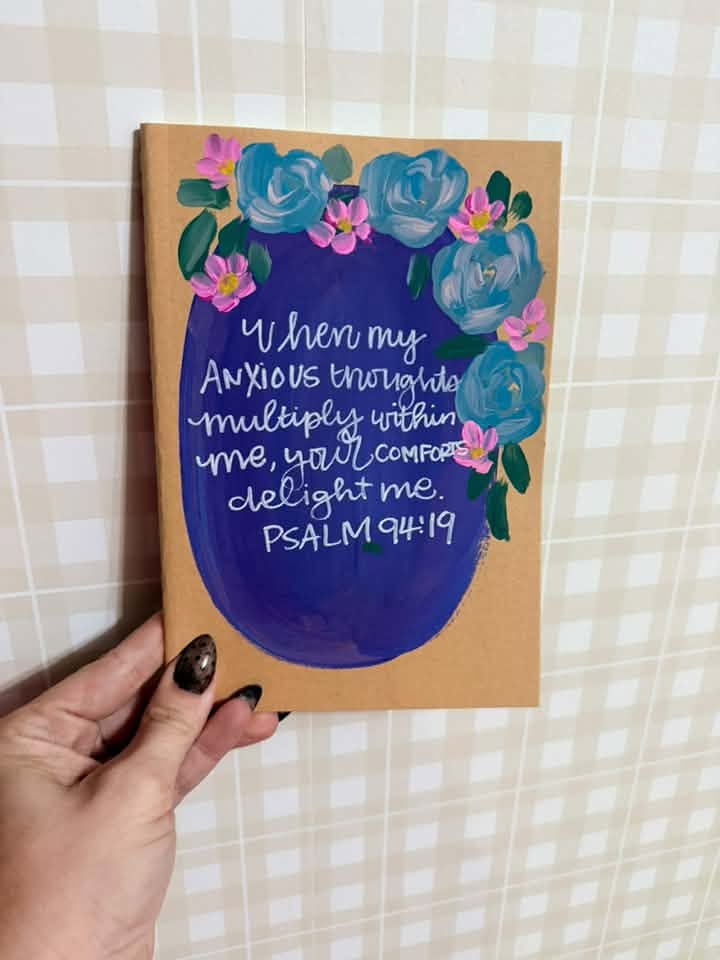 When my
ANXIOUS thoughts
multiply within
me, your COMFORTS
delight me.
PSALM 94:19